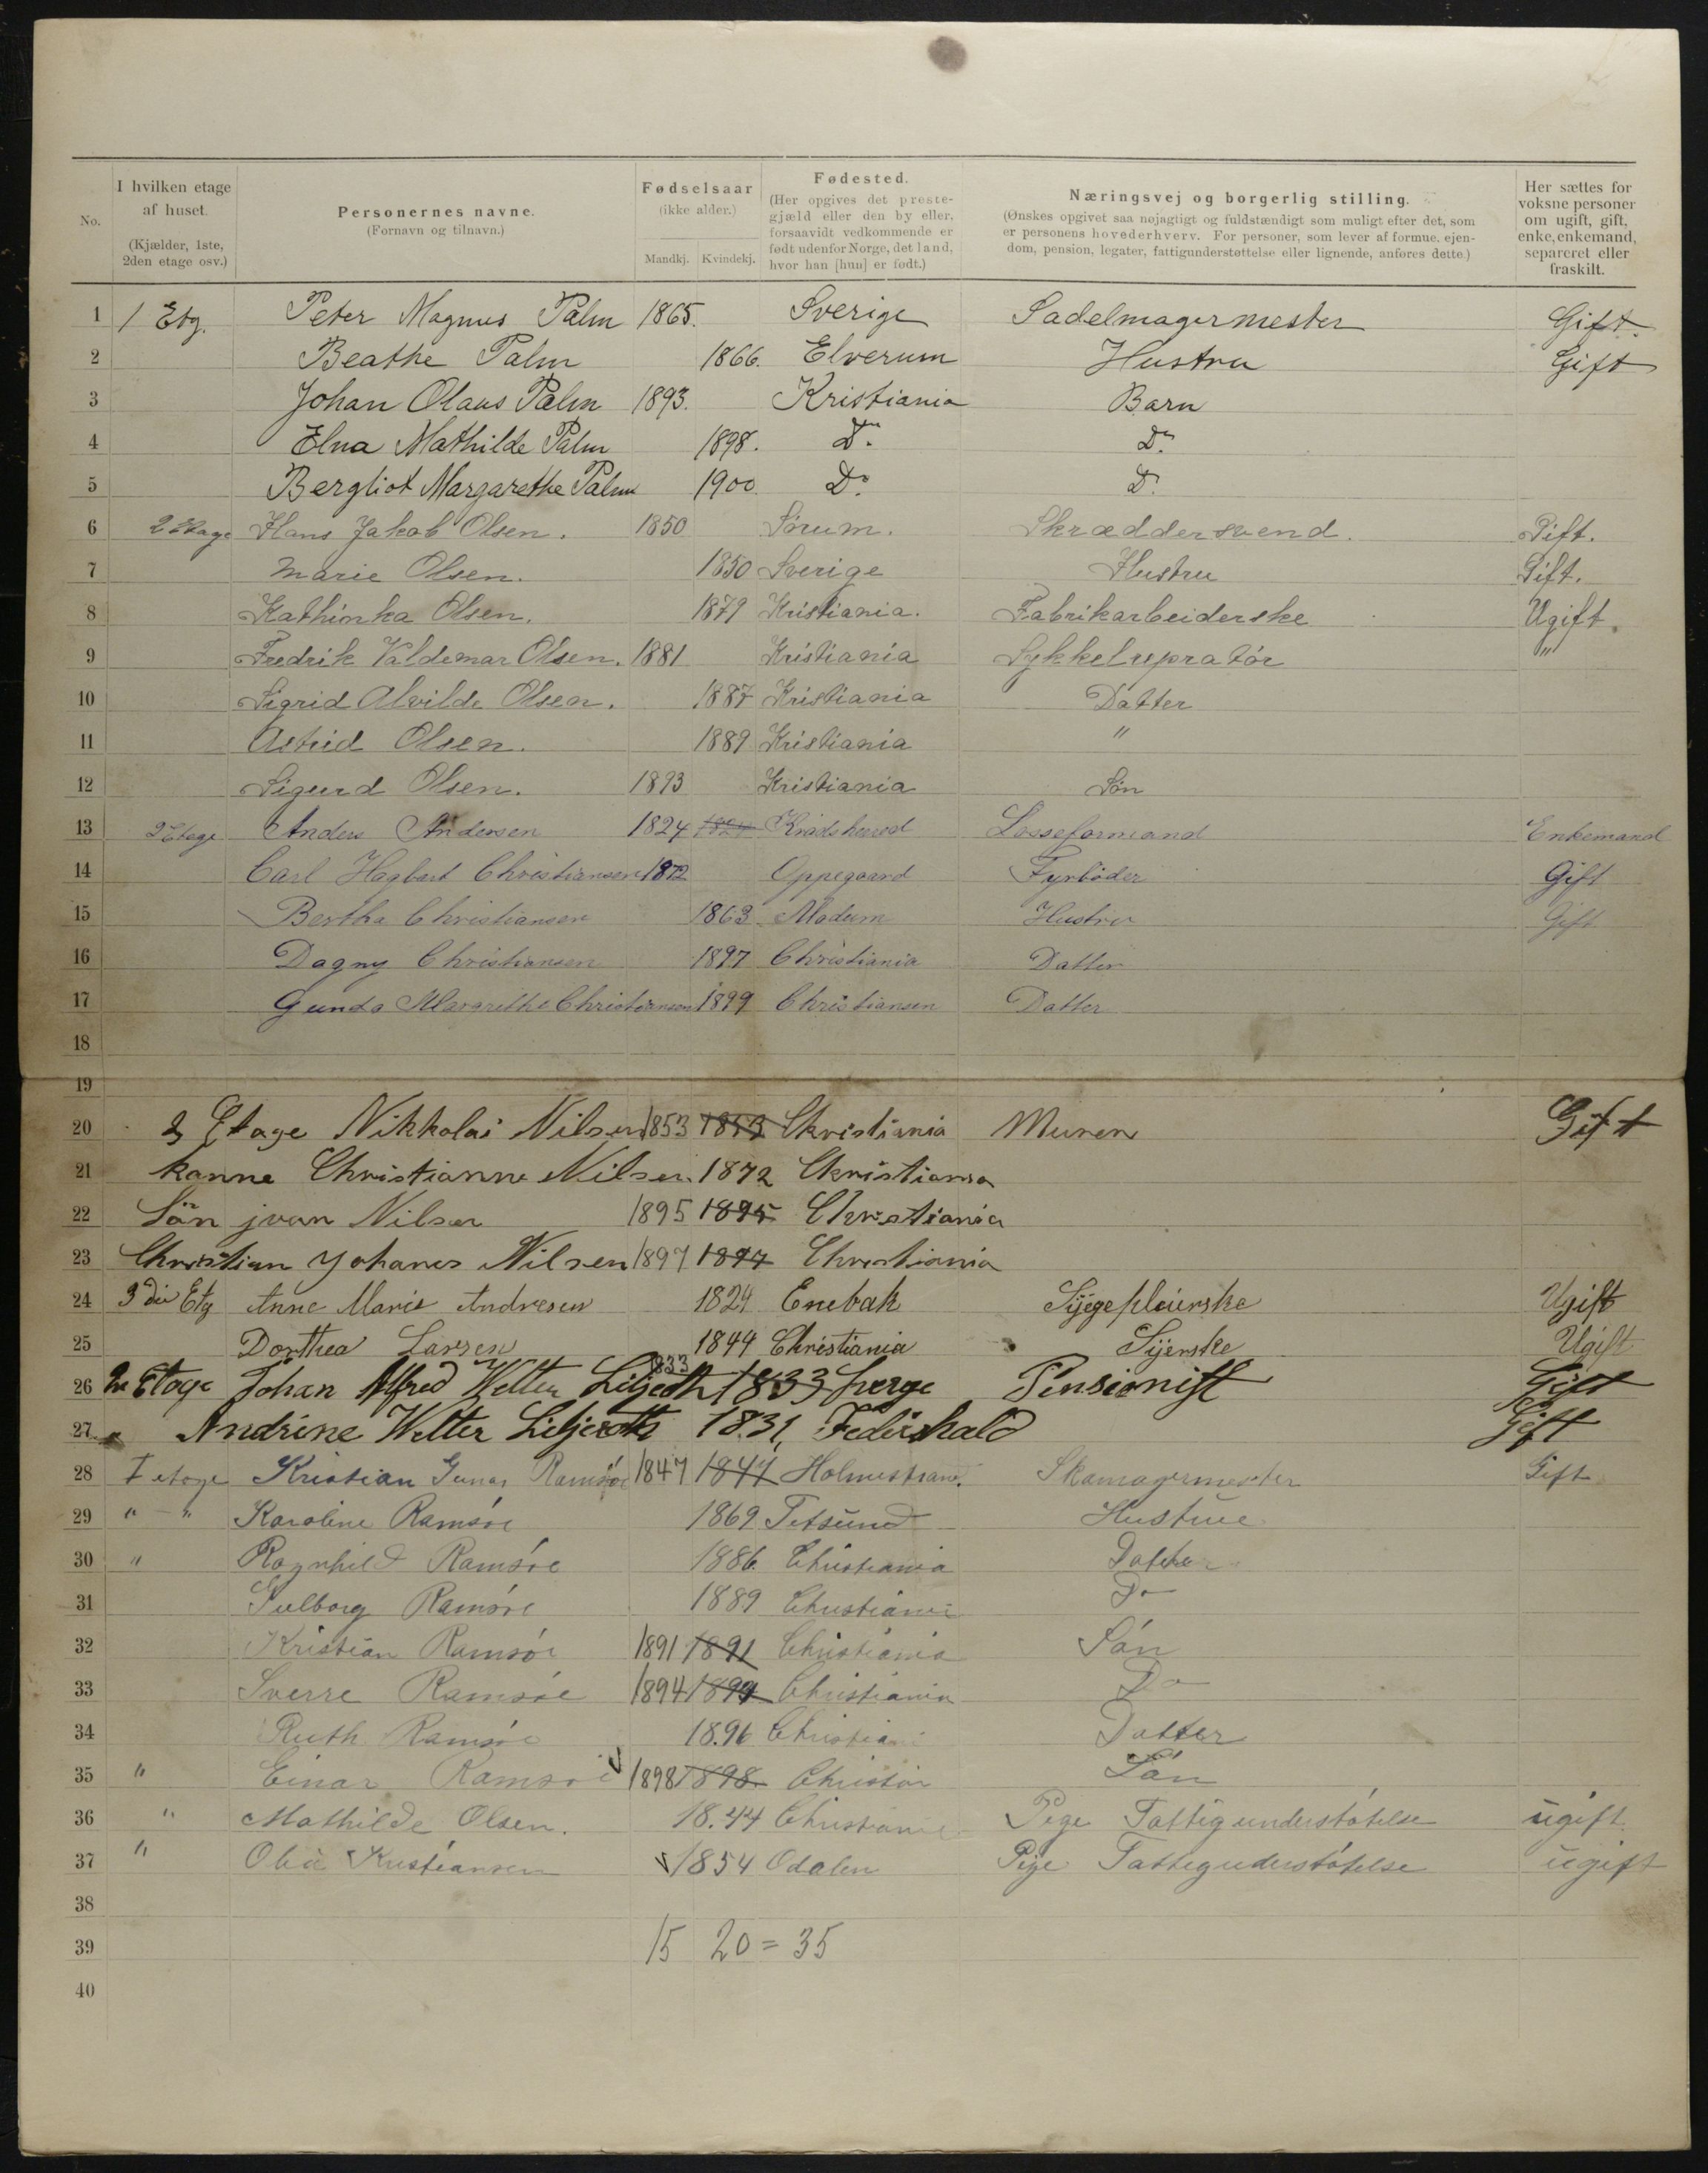 No.
I hvilken etage af huset. (Kjælder, 1ste, 2den etage osv.)
Personernes navne. (Fornavn og tilnavn.)
Fødselsaar (ikke alder.) Mandkj. Kvindekj.
Fødested. (Her opgives det prestegjæld eller den by eller, forsaavidt vedkommende er født udenfor Norge, det land, hvor han [hun] er født.)
Næringsvej og borgerlig stilling. (Ønskes opgivet saa nøjagtigt og fuldstændigt som muligt efter det, som er personens hovederhverv. For personer, som lever af formue, ejendom, pension, legater, fattigunderstøttelse eller lignende, anføres dette.)
Her sættes for voksne personer om ugift, gift, enke, enkemand, separeret eller fraskilt.
1 1 Etg. Peter Magnus Palm 1865. Sverige Sadelmagermester Gift.
2 Beathe Palm 1866. Elverum Hustru Gift
3 Johan Olaus Palm 1893. Kristiania Barn
4 Elna Mathilde Palm 1898. Do. Do.
5 Bergliot Margarethe Palm 1900. Do. Do.
6 2 Etage Hans Jakob Olsen. 1850 Sørum. Skræddersvend. Gift.
7 Marie Olsen. 1850 Sverige Hustru Gift.
8 Kathinka Olsen. 1879 Kristiania. Fabrikarbeiderske Ugift.
9 Fredrik Valdemar Olsen. 1881 Kristiania Sykkelrepratör "
10 Sigrid Alvilde Olsen. 1887 Kristiania Datter
11 Astrid Olsen. 1889 Kristiania "
12 Sigurd Olsen. 1893 Kristiania Søn
13 2 Etage Anders Andersen 1824 1824 Kradsherred Losseformand Enkemand
14 Carl Hagbart Christiansen 1872 Oppegaard Fyrbøder Gift
15 Bertha Christiansen 1863 Modum Hustru Gift
16 Dagny Christiansen 1897 Christiania Datter
17 Gunda Margrethe Christiansen 1899 Christiansen Datter
18
19
20 2 Etage Nikkolai Nilsen 1853 1853 Christiania Murer Gift
21 kanne Christianne Nilsen 1872 Christiania
22 Sön jvan Nilsen 1895 1895 Christiania
23 Christian Yohanes Nilsen 1897 1897 Christiania
24 3die Etg Anne Marie Andresen 1824 Enebak Sygepleierske Ugift
25 Dorthea Larsen 1844 Christiania Syerske Ugift
26 2 Etage Johan Alfred Welter Liljeroth 1833 1833 Sverge Pensionist Gift
27 " Andrine Welter Liljeroth 1831, Fedrishald Gift
28 I etage Kristian Gunar Ramsöe 1847 1847 Holmestrand. Skomagermester Gift
29 " - " Karoline Ramsöe 1869 Fetsund Hustrue
30 " Ragnhild Ramsöe 1886. Christiania Datter
31 Gulborg Ramsöe 1889 Christiania Do
32 Kristian Ramsöe 1891 1891 Christiania Sön
33 Sverre Ramsöe 1894 1894 Christiania Do
34 Ruth Ramsöe 18.96 Christiania Datter
35 " Einar Ramsöe 1898 1898 Christian Sön
36 " Mathilde Olsen. 18.44 Christiania Pige Fattigunderstötelse ugift
37 " Olia Kristiansen 1854 Odalen Pige Fattigunderstötelse ugift
38
39 15 20 = 35
40